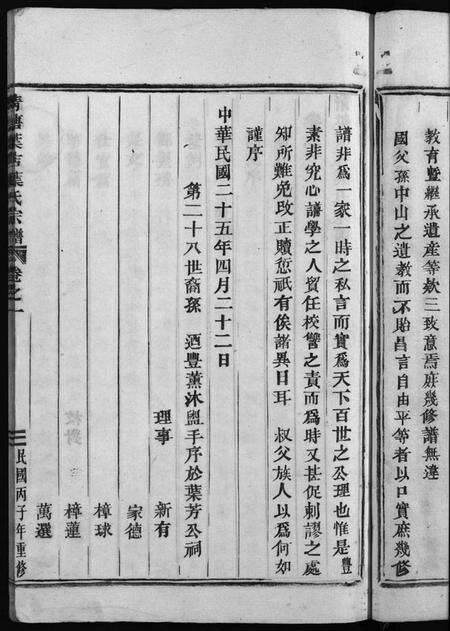 教育暨繼承遺產等欵三致意焉庶幾修譜無違
國父孫中山之遺教而不貽昌言自由平等者以口實庶幾修
譜非爲一家一時之私言而實爲天下百世之公理也惟是豐
素非究心譜學之人貿任校讐之責而爲時又甚促刺謬之處
知所難免改正贖愆祇有俟諸異日耳 叔父族人以爲何如
謹序
中華民國二十五年四月二十二日
第二十八世裔孫 迺豐薰沐盥手序於葉芳公祠
理事 新有
家德
樟球
樟蓮
萬選
葉氏宗譜 卷之一
民國丙子年重修